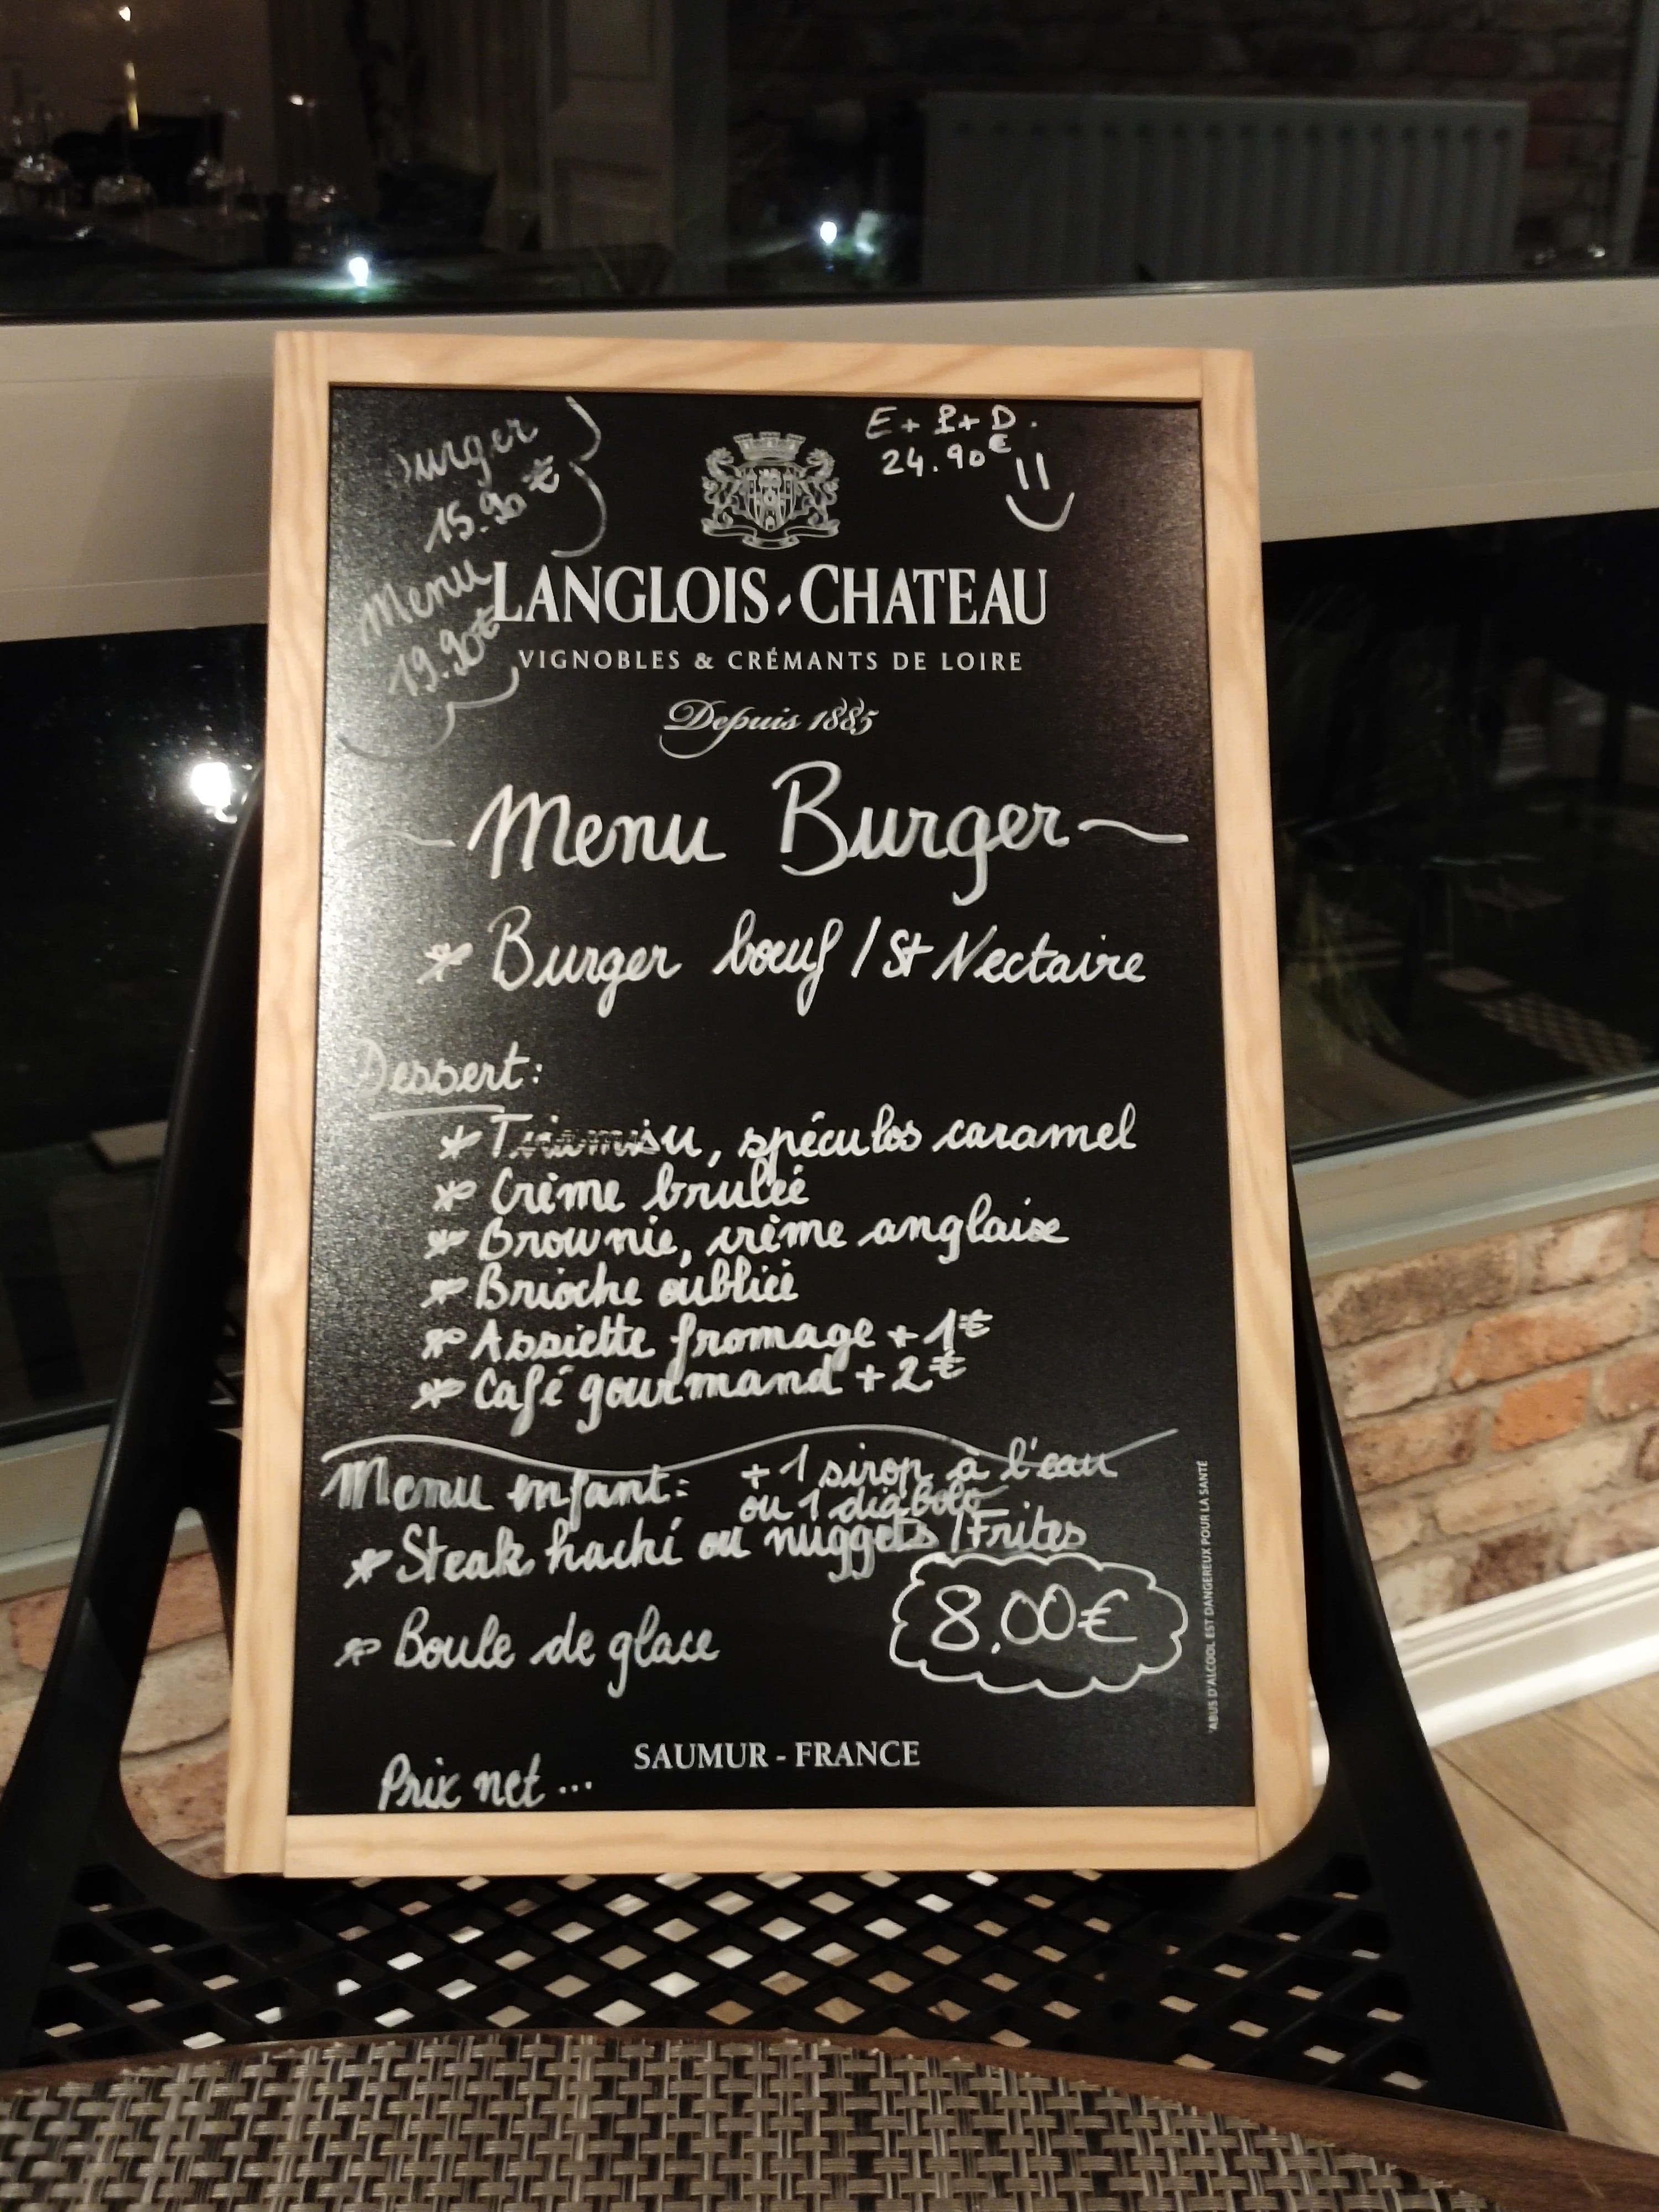 Burger
15.90€
Menu
19.90€
E + P + D.
24.90€
LANGLOIS-CHATEAU
VIGNOBLES & CRÉMANTS DE LOIRE
Depuis 1885
~ Menu Burger ~
* Burger bœuf / St Nectaire
Dessert:
* Tiramisu, spéculos caramel
* Crème brulée
* Brownie, crème anglaise
* Brioche oubliée
* Assiette fromage + 1€
* Café gourmand + 2€
Menu enfant: + 1 sirop à l'eau
ou 1 diabolo
* Steak haché ou nuggets / Frites
8,00€
* Boule de glace
SAUMUR - FRANCE
Prix net ...
ABUS D'ALCOOL EST DANGEREUX POUR LA SANTÉ